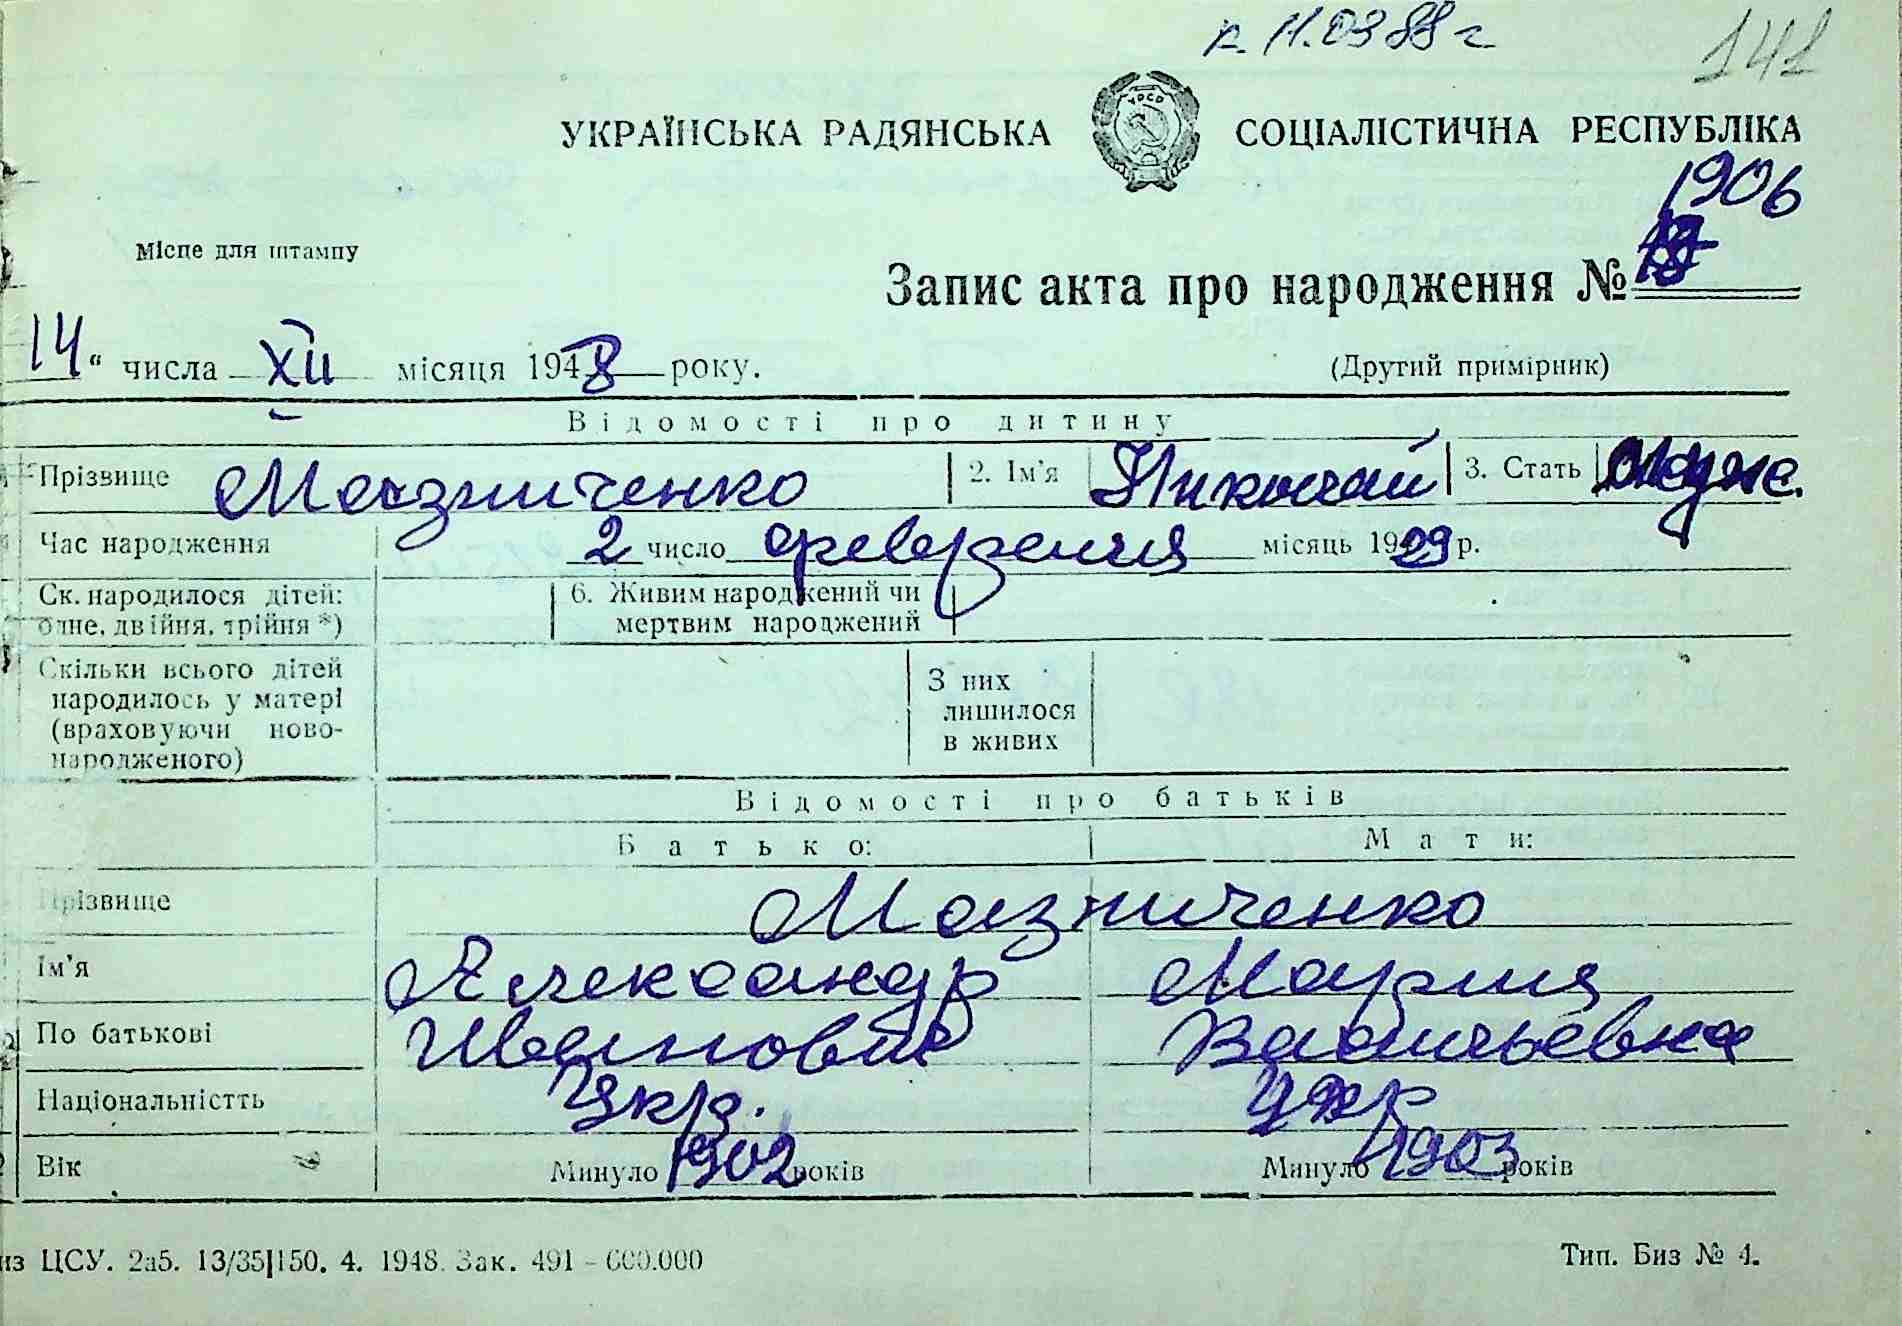 к. 11.03 88 г
141
УКРАЇНСЬКА РАДЯНСЬКА СОЦІАЛІСТИЧНА РЕСПУБЛІКА
УРСР
1906
Місце для штампу
Запис акта про народження №
14 " числа XII місяця 1948 року.
(Другий примірник)
Відомості про дитину
Прізвище Мазниченко 2. Ім'я Николай 3. Стать муж.
Час народження 2 число февраля місяць 1929 р.
Ск. народилося дітей: одне, двійня, трійня *) 6. Живим народжений чи мертвим народжений
Скільки всього дітей народилось у матері (враховуючи ново-народженого) З них лишилося в живих
Відомості про батьків
Батько: Мати:
Прізвище Мазниченко
Ім'я Александр Мария
По батькові Иванович Васильевна
Національністть Укр. Укр
Вік Минуло 1902 років Минуло 1903 років
из ЦСУ. 2а5. 13/35|150. 4. 1948. Зак. 491 - 600.000
Тип. Биз № 4.